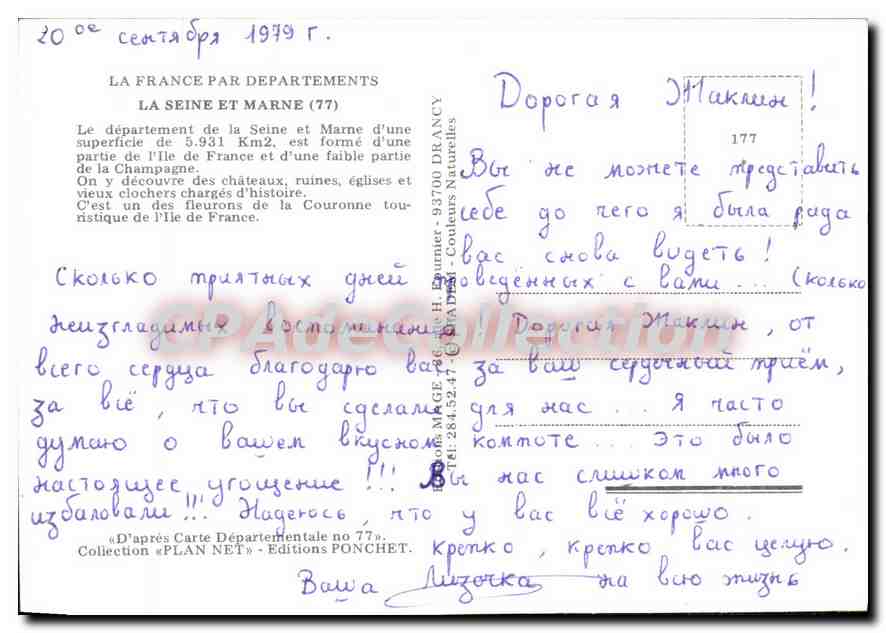 20 ое сентября 1979 г.
LA FRANCE PAR DEPARTEMENTS
LA SEINE ET MARNE (77)
Le département de la Seine et Marne d'une
superficie de 5.931 Km2, est formé d'une
partie de l'Ile de France et d'une faible partie
de la Champagne.
On y découvre des châteaux, ruines, églises et
vieux clochers chargés d'histoire.
C'est un des fleurons de la Couronne tou-
ristique de l'Ile de France.
177
Дорогая Жаклин!
Вы не можете представить
себе до чего я была рада
вас снова видеть!
Сколько приятных дней проведённых с вами... Сколько
неизгладимых воспоминаний! Дорогая Жаклин, от
всего сердца благодарю вас за ваш сердечный приём,
за всё, что вы сделали для нас... Я часто
думаю о вашем вкусном компоте... Это было
настоящее угощение!!! Вы нас слишком много
избаловали!!! Надеюсь, что у вас всё хорошо.
Крепко, крепко вас целую.
Ваша Лизочка на всю жизнь
«D'après Carte Départementale no 77».
Collection «PLAN NET» - Editions PONCHET.
MAGE - H. Fournier - 93700 DRANCY
Tél: 284.52.47 - © DIADEM - Couleurs Naturelles
CPAdeCollection